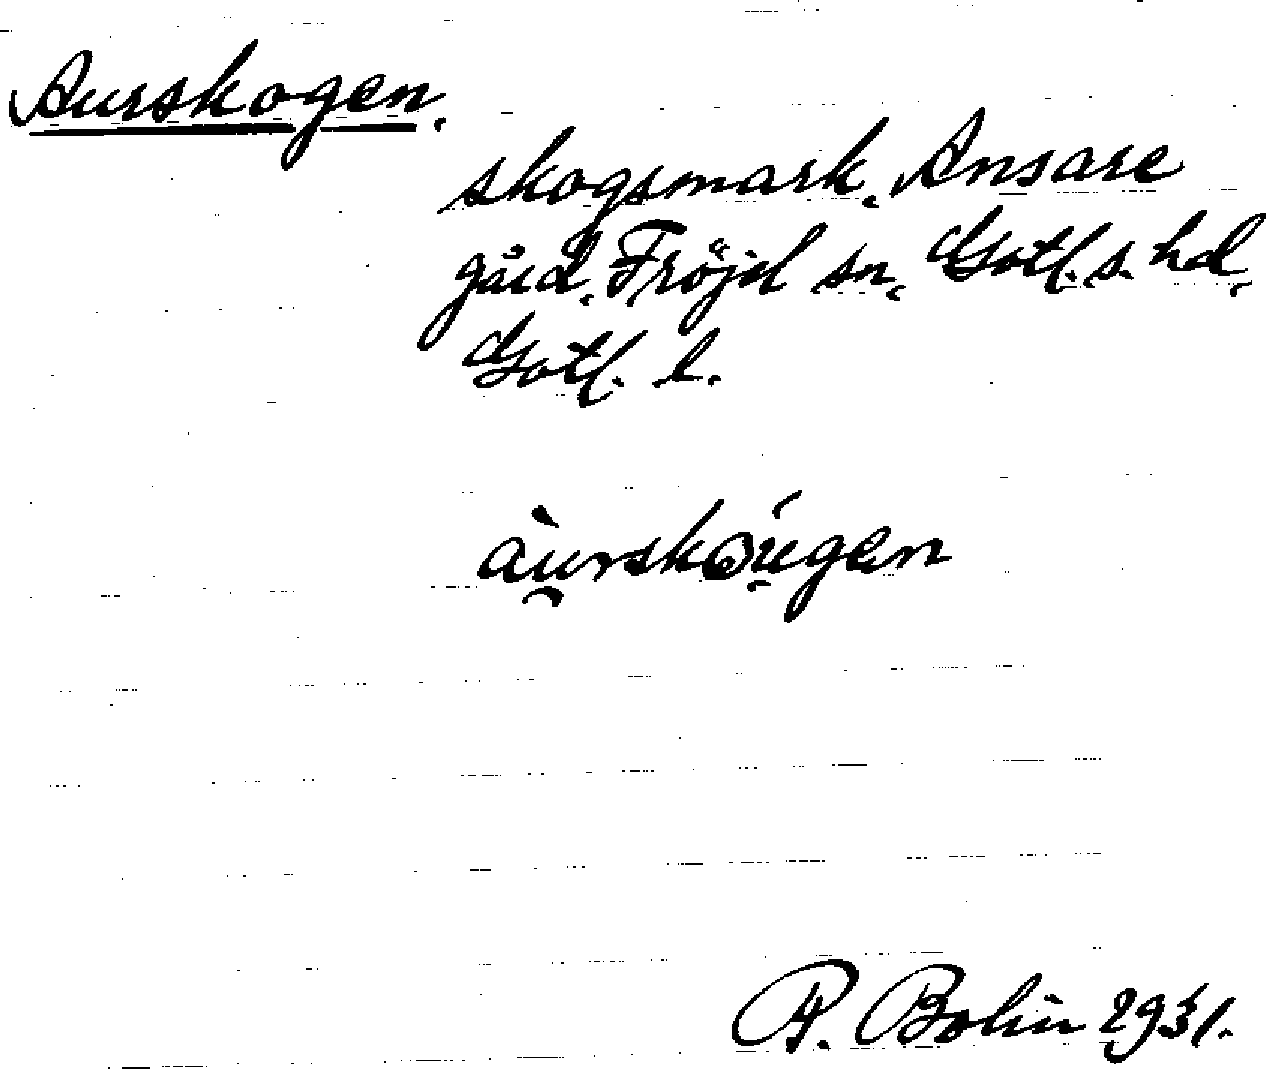 Aurskogen.
skogsmark, Ansare
gård, Fröjel sn, Gotl. s. hd,
Gotl. l.
àu̯rskɷú̯gen
P. Bohin 1931.